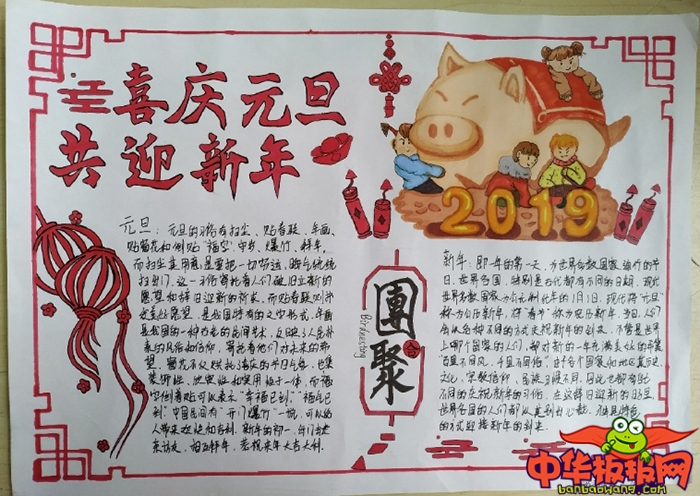 喜庆元旦
共迎新年
2019
元旦：元旦的习俗有扫尘、贴春联、年画、
贴窗花和倒贴"福"字、守岁、爆竹、拜年。
而扫尘其用意是要把一切穷运、晦气统统
扫出门，这一习俗寄托着人们破旧立新的
愿望和辞旧迎新的祈求。而贴春联则
美好愿望，是我国特有的文学形式，年画
是我国的一种古老的民间艺术，反映了人民朴
素的风俗和信仰，寄托着他们对未来的希
望。窗花不仅烘托了喜庆的节日气氛，也集
装饰性、欣赏性和实用性于一体，而福
字倒着贴可以表示"幸福已到""福气已
到"中国民间有"开门爆竹"一说，可以给
人带来欢愉和吉利。新年的初一，人们
亲访友，相互拜年，恭祝来年大吉大利。
團聚
合
新年：即一年的第一天，为世界多数国家通行的节
日。世界各国，特别是古代都有不同的日期，现代
世界多数国家为公元制化年的1月1日。现代将"元旦"
称为公历新年，将"春节"称为农历新年。当日，人们
会以各种不同的方式庆祝新年的到来，不管是世界
上哪个国家的人们，都对新的一年充满
"百里不同风，千里不同俗"由于各个国家和地区其历史
文化、宗教信仰、民族习惯不同，因此也都有
不同的庆祝新年的习俗。在这辞旧迎新的
世界各国的人们都以
的方式迎接新年的到来。
中华板报网
banbaowang.com